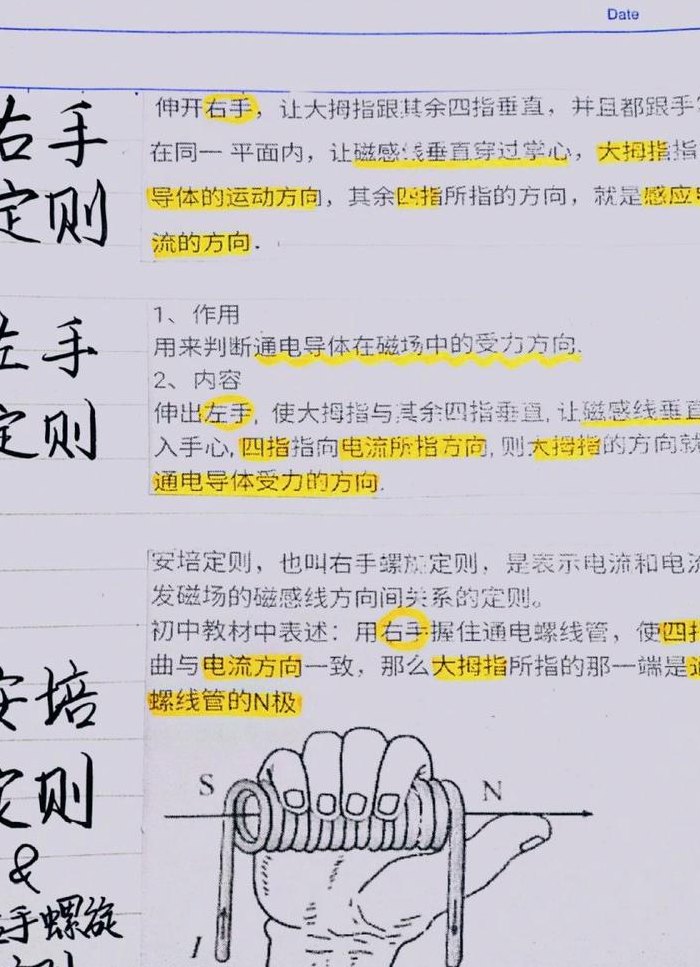 Date
右手
定则
伸开右手，让大拇指跟其余四指垂直，并且都跟手
在同一 平面内，让磁感线垂直穿过掌心，大拇指指
导体的运动方向，其余四指所指的方向，就是感应
流的方向．
左手
定则
1、 作用
用来判断通电导体在磁场中的受力方向.
2、 内容
伸出左手, 使大拇指与其余四指垂直, 让磁感线垂直
入手心, 四指指向电流所指方向, 则大拇指的方向就
通电导体受力的方向.
安培
定则
&
手螺旋
安培定则，也叫右手螺旋定则，是表示电流和电流
发磁场的磁感线方向间关系的定则。
初中教材中表述：用右手握住通电螺线管，使四指
曲与电流方向一致，那么大拇指所指的那一端是通
螺线管的N极
S
N
I